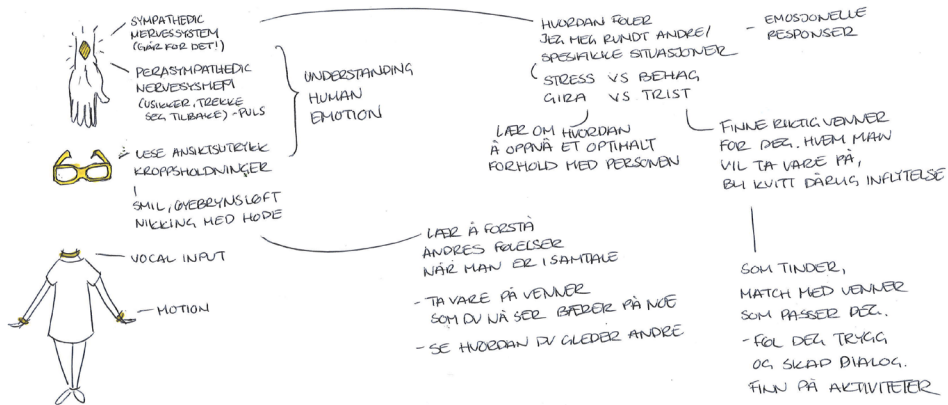 SYMPATHEDIC
NERVESSYSTEM
(GÅR FOR DET!)
PERASYMPATHEDIC
NERVESYSMEM
(USIKKER, TREKKE
SEG TILBAKE) - PULS
UNDERSTANDING
HUMAN
EMOTION
LESE ANSIKTSUTRYKK
KROPPSHOLDNINGER
SMIL, ØYEBRYNSLØFT
NIKKING MED HODE
VOCAL INPUT
- MOTION
HVORDAN FØLER
JEG MEG RUNDT ANDRE/
SPESIFIKKE SITUASJONER
- EMOSJONELLE
RESPONSER
STRESS VS BEHAG
GIRA VS TRIST
LÆR OM HVORDAN
Å OPPNÅ ET OPTIMALT
FORHOLD MED PERSONEN
FINNE RIKTIG VENNER
FOR DEG. HVEM MAN
VIL TA VARE PÅ,
BLI KVITT DÅRLIG INFLYTELSE
LÆR Å FORSTÅ
ANDRES FØLELSER
NÅR MAN ER I SAMTALE
- TA VARE PÅ VENNER
SOM DU NÅ SER BÆRER PÅ NOE
- SE HVORDAN DU GLEDER ANDRE
SOM TINDER,
MATCH MED VENNER
SOM PASSER DEG.
- FØL DEG TRYGG
OG SKAP DIALOG.
FINN PÅ AKTIVITETER